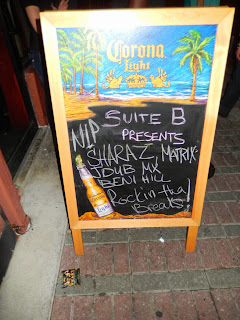 Corona
Light
SUITE B
PRESENTS
NIP
SHARAZ, MATRIX
JDUB MX
BENI HILL
Rockin tha
Breaks!